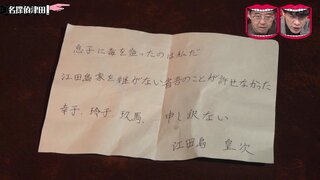 名探偵津田
息子に毒を盛ったのは私だ
江田島家を継がない省吾のことが許せなかった
幸子、玲子、玖馬、申し訳ない
江田島 皇次